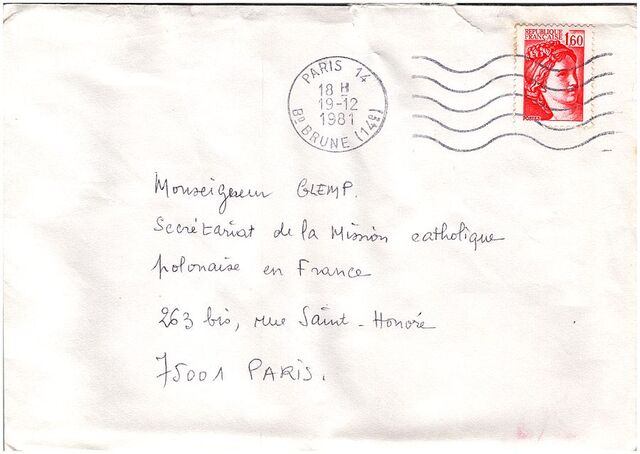 REPUBLIQUE
FRANÇAISE 1,60
POSTES
PARIS 14
18 H
19-12
1981
BD BRUNE (14E)
Monseigneur GLEMP.
Secrétariat de la Mission catholique
polonaise en France
263 bis, rue Saint-Honoré
75001 PARIS.